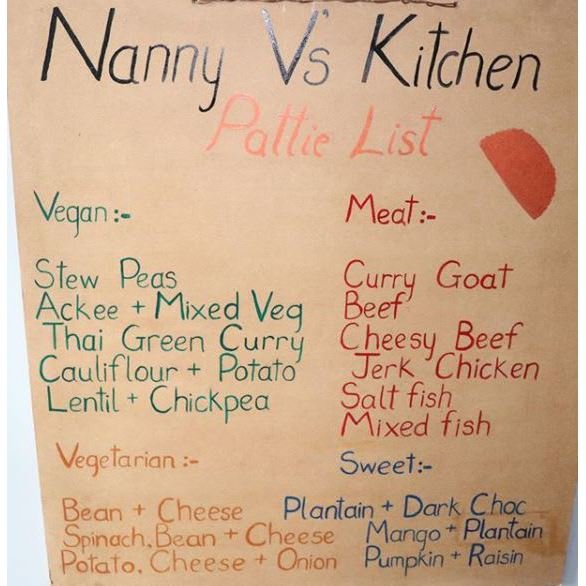 Nanny V's Kitchen
Pattie List
Vegan:-
Stew Peas
Ackee + Mixed Veg
Thai Green Curry
Cauliflour + Potato
Lentil + Chickpea
Meat:-
Curry Goat
Beef
Cheesy Beef
Jerk Chicken
Salt fish
Mixed fish
Vegetarian:-
Bean + Cheese
Spinach, Bean + Cheese
Potato, Cheese + Onion
Sweet:-
Plantain + Dark Choc
Mango + Plantain
Pumpkin + Raisin